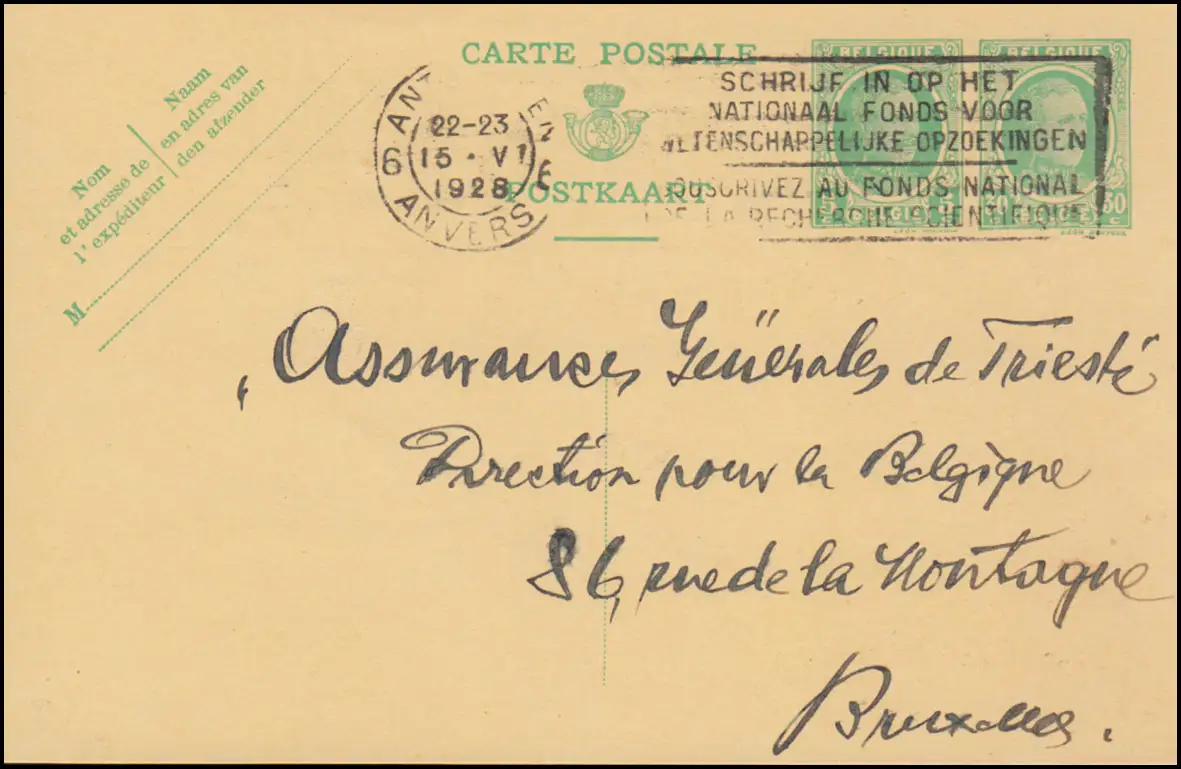 CARTE POSTALE
POSTKAART
Nom
et adresse de
l'expéditeur
Naam
en adres van
den afzender
M
6 ANVERS 6
22-23
15 · VI
1928
SCHRIJF IN OP HET
NATIONAAL FONDS VOOR
WETENSCHAPPELIJKE OPZOEKINGEN
SOUSCRIVEZ AU FONDS NATIONAL
DE LA RECHERCHE SCIENTIFIQUE
BELGIQUE
BELGIQUE
5 5
BELGIË
30 30
BELGIË
Assurances Générales de Trieste
Direction pour la Belgique
86, rue de la Montagne
Bruxelles.